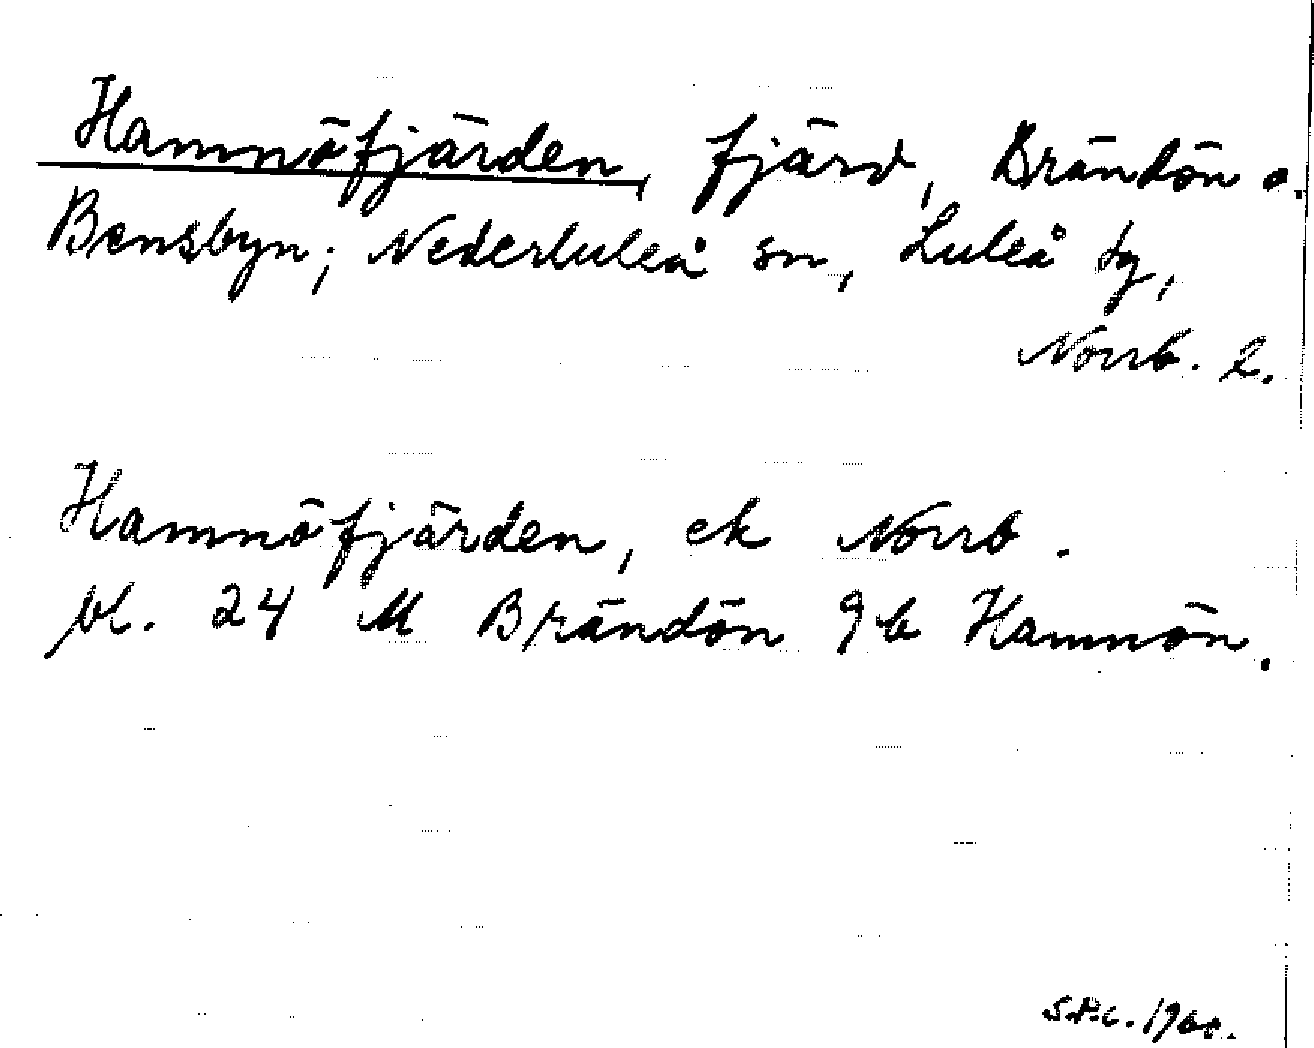 Hamnöfjärden, fjärd, Brändön o.
Bensbyn; Nederluleå sn, Luleå tg,
Norrb. l.
Hamnöfjärden, ek Norrb.
bl. 24 M Brändön 9b Hamnön.
S.P.C. 1960.